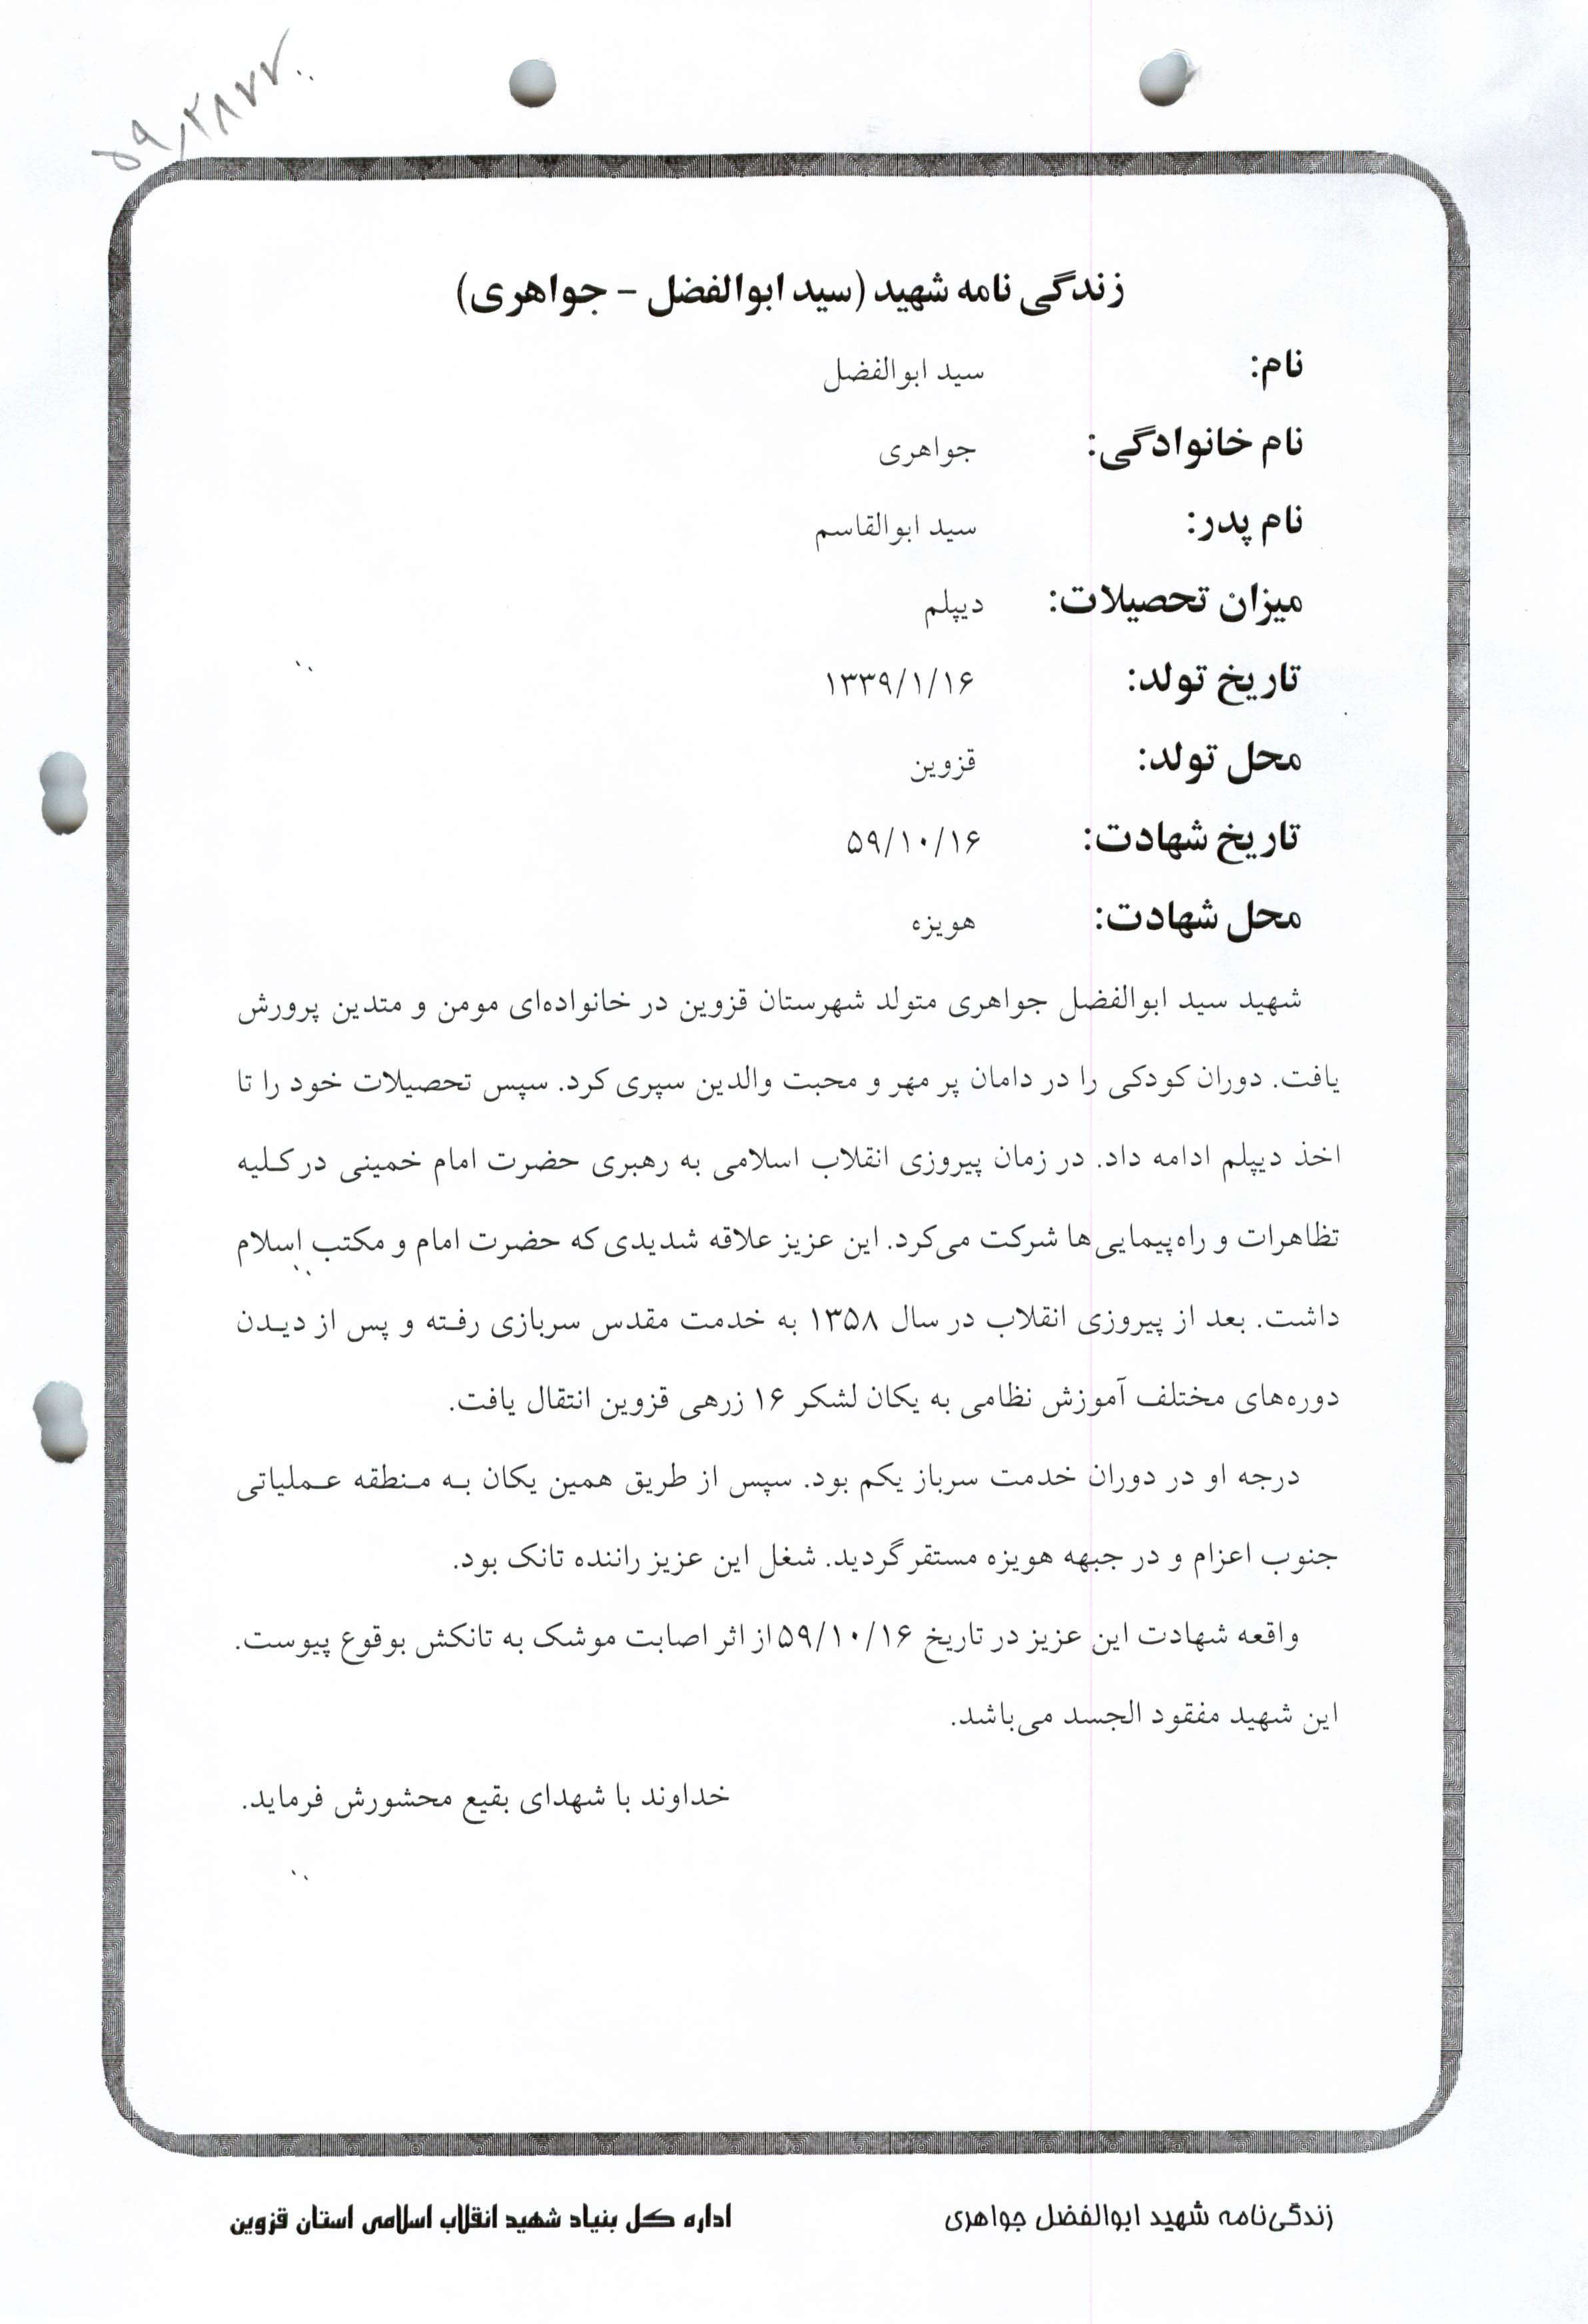 زندگی نامه شهید (سید ابوالفضل - جواهری)
نام: سید ابوالفضل
نام خانوادگی: جواهری
نام پدر: سید ابوالقاسم
میزان تحصیلات: دیپلم
تاریخ تولد: ۱۳۳۹/۱/۱۶
محل تولد: قزوین
تاریخ شهادت: ۵۹/۱۰/۱۶
محل شهادت: هویزه
شهید سید ابوالفضل جواهری متولد شهرستان قزوین در خانواده‌ای مومن و متدین پرورش
یافت. دوران کودکی را در دامان پر مهر و محبت والدین سپری کرد. سپس تحصیلات خود را تا
اخذ دیپلم ادامه داد. در زمان پیروزی انقلاب اسلامی به رهبری حضرت امام خمینی در کلیه
تظاهرات و راه‌پیمایی‌ها شرکت می‌کرد. این عزیز علاقه شدیدی که حضرت امام و مکتب اسلام
داشت. بعد از پیروزی انقلاب در سال ۱۳۵۸ به خدمت مقدس سربازی رفته و پس از دیدن
دوره‌های مختلف آموزش نظامی به یکان لشکر ۱۶ زرهی قزوین انتقال یافت.
درجه او در دوران خدمت سرباز یکم بود. سپس از طریق همین یکان به منطقه عملیاتی
جنوب اعزام و در جبهه هویزه مستقر گردید. شغل این عزیز راننده تانک بود.
واقعه شهادت این عزیز در تاریخ ۵۹/۱۰/۱۶ از اثر اصابت موشک به تانکش بوقوع پیوست.
این شهید مفقود الجسد می‌باشد.
خداوند با شهدای بقیع محشورش فرماید.
زندگی‌نامه شهید ابوالفضل جواهری
اداره کل بنیاد شهید انقلاب اسلامی استان قزوین